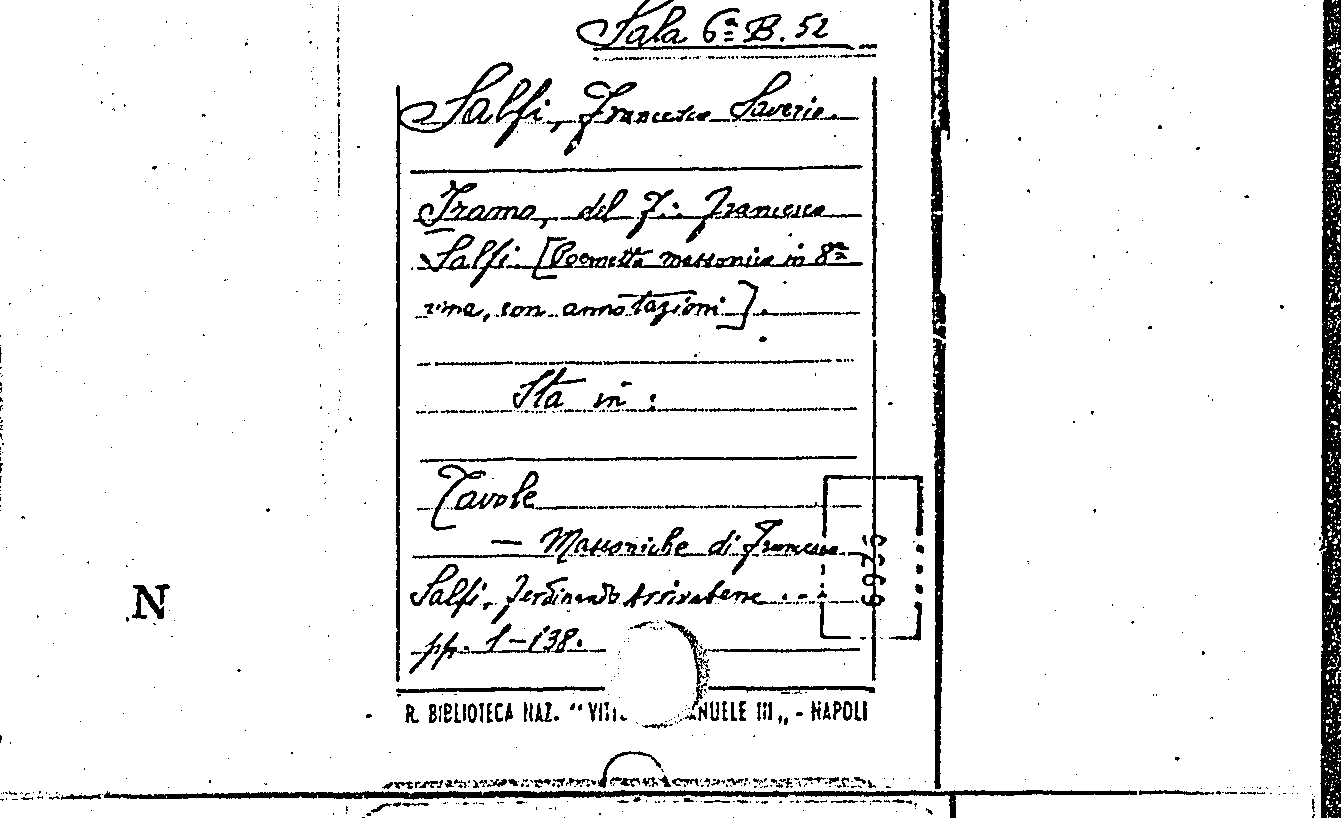 Sala 6ª B. 52
Salfi, Francesco Saverio.
Iramo, del F∴ Francesco
Salfi. [Poemetto massonico in 8ª
rima, con annotazioni].
Sta in :
Tavole
— Massoniche di Francesco
Salfi, Ferdinando Arrivabene ...
pp. 1-138.
6935
N
R. BIBLIOTECA NAZ. “ VITT ANUELE III „ - NAPOLI